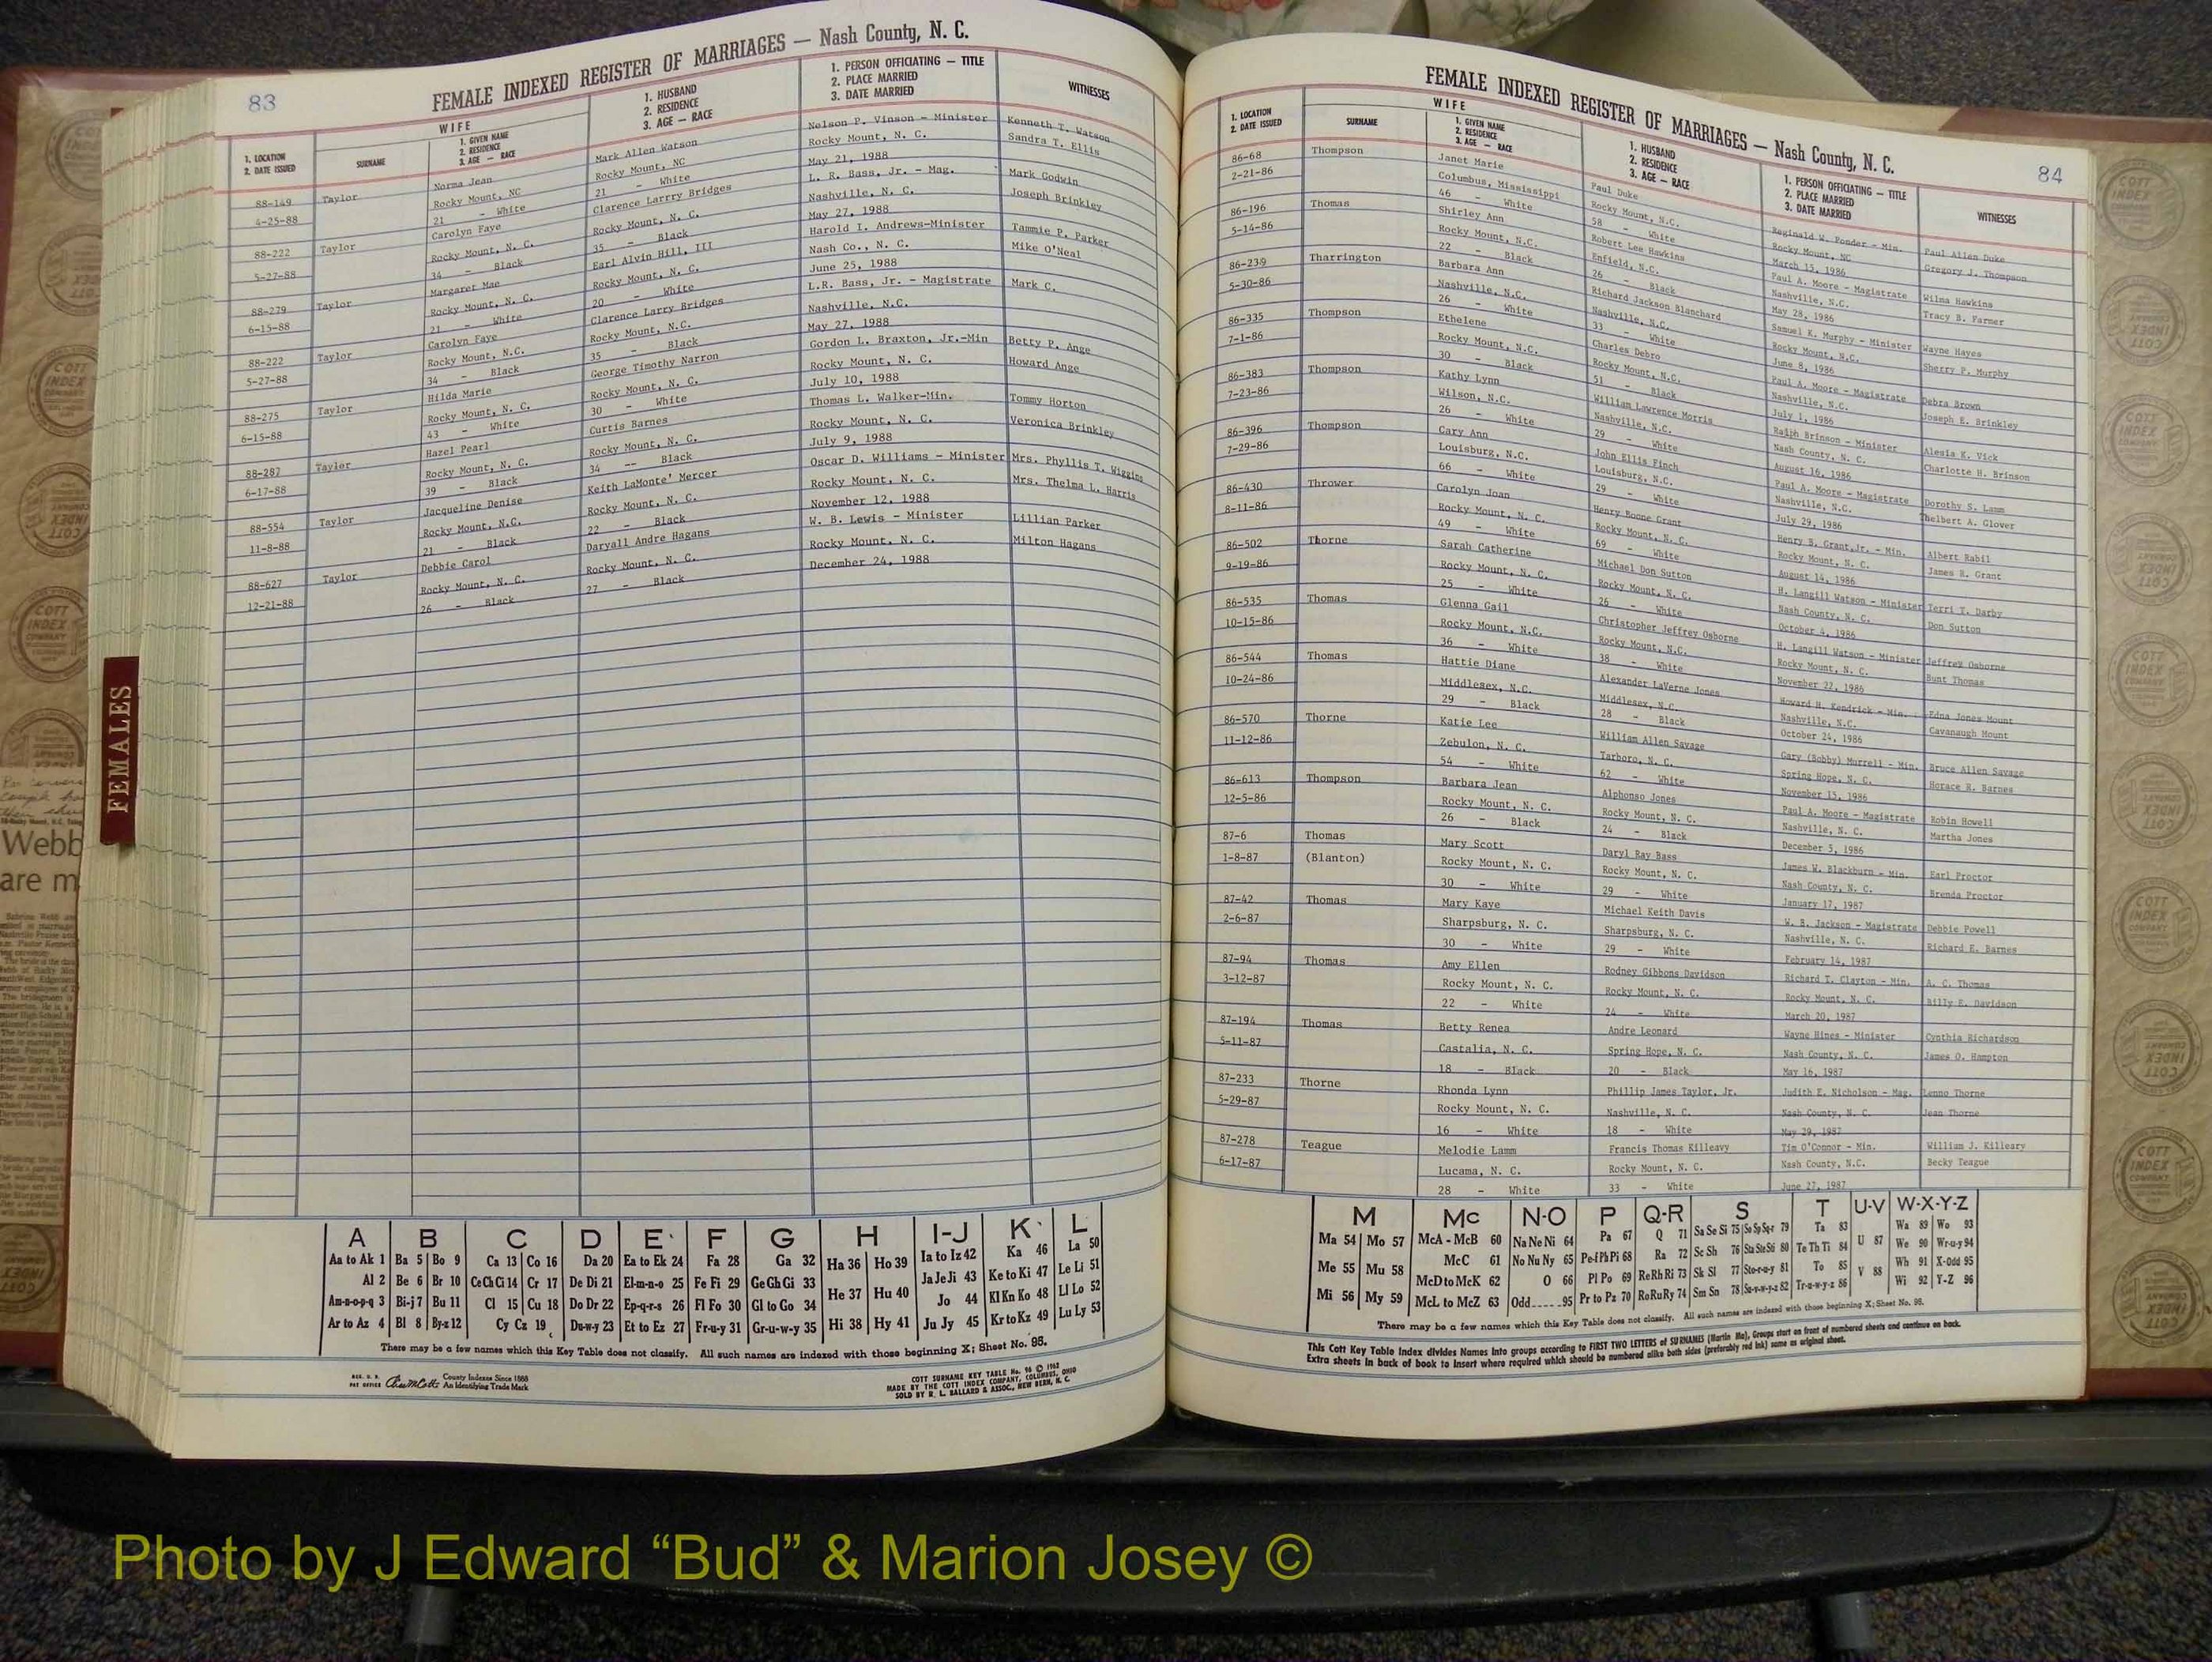 83
FEMALE INDEXED REGISTER OF MARRIAGES — Nash County, N. C.
1. LOCATION
2. DATE ISSUED
WIFE
SURNAME
1. GIVEN NAME
2. RESIDENCE
3. AGE — RACE
1. HUSBAND
2. RESIDENCE
3. AGE — RACE
1. PERSON OFFICIATING — TITLE
2. PLACE MARRIED
3. DATE MARRIED
WITNESSES
88-149 Taylor Norma Jean Mark Allen Watson Nelson P. Vinson - Minister Kenneth T. Watson
4-25-88 Rocky Mount, NC Rocky Mount, NC Rocky Mount, N. C. Sandra T. Ellis
21 - White 21 - White May 21, 1988
88-222 Taylor Carolyn Faye Clarence Larrry Bridges L. R. Bass, Jr. - Mag. Mark Godwin
5-27-88 Rocky Mount, N. C. Rocky Mount, N. C. Nashville, N. C. Joseph Brinkley
34 - Black 35 - Black May 27, 1988
88-279 Taylor Margaret Mae Earl Alvin Hill, III Harold I. Andrews-Minister Tammie P. Parker
6-15-88 Rocky Mount, N. C. Rocky Mount, N. C. Nash Co., N. C. Mike O'Neal
21 - White 20 - White June 25, 1988
88-222 Taylor Carolyn Faye Clarence Larry Bridges L.R. Bass, Jr. - Magistrate Mark C.
5-27-88 Rocky Mount, N.C. Rocky Mount, N.C. Nashville, N.C.
34 - Black 35 - Black May 27, 1988
88-275 Taylor Hilda Marie George Timothy Narron Gordon L. Braxton, Jr.-Min Betty P. Ange
6-15-88 Rocky Mount, N. C. Rocky Mount, N. C. Rocky Mount, N. C. Howard Ange
43 - White 30 - White July 10, 1988
88-287 Taylor Hazel Pearl Curtis Barnes Thomas L. Walker-Min. Tommy Horton
6-17-88 Rocky Mount, N. C. Rocky Mount, N. C. Rocky Mount, N. C. Veronica Brinkley
39 - Black 34 -- Black July 9, 1988
88-554 Taylor Jacqueline Denise Keith LaMonte' Mercer Oscar D. Williams - Minister Mrs. Phyllis T. Wiggins
11-8-88 Rocky Mount, N.C. Rocky Mount, N. C. Rocky Mount, N. C. Mrs. Thelma L. Harris
21 - Black 22 - Black November 12, 1988
88-627 Taylor Debbie Carol Daryall Andre Hagans W. B. Lewis - Minister Lillian Parker
12-21-88 Rocky Mount, N. C. Rocky Mount, N. C. Rocky Mount, N. C. Milton Hagans
26 - Black 27 - Black December 24, 1988
FEMALES
Webb
are m
A B C D E F G H I-J K L
Aa to Ak 1 Ba 5 Bo 9 Ca 13 Co 16 Da 20 Ea to Ek 24 Fa 28 Ga 32 Ha 36 Ho 39 Ia to Iz 42 Ka 46 La 50
Al 2 Be 6 Br 10 Ce Ch Ci 14 Cr 17 De Di 21 El-m-n-o 25 Fe Fi 29 Ge Gh Gi 33 He 37 Hu 40 Ja Je Ji 43 Ke to Ki 47 Le Li 51
Am-n-o-p-q 3 Bi-j 7 Bu 11 Cl 15 Cu 18 Do Dr 22 Ep-q-r-s 26 Fl Fo 30 Gl to Go 34 Hi 38 Hy 41 Jo 44 Kl Kn Ko 48 Ll Lo 52
Ar to Az 4 Bl 8 By-z 12 Cy Cz 19 Du-w-y 23 Et to Ez 27 Fr-u-y 31 Gr-u-w-y 35 Ju Jy 45 Kr to Kz 49 Lu Ly 53
There may be a few names which this Key Table does not classify. All such names are indexed with those beginning X; Sheet No. 95.
REG. U. S. PAT OFFICE County Indexes Since 1888 An Identifying Trade Mark
COTT SURNAME KEY TABLE No. 96 © 1962
MADE BY THE COTT INDEX COMPANY, COLUMBUS, OHIO
SOLD BY R. L. BALLARD & ASSOC., NEW BERN, N. C.
84
FEMALE INDEXED REGISTER OF MARRIAGES — Nash County, N. C.
1. LOCATION
2. DATE ISSUED
WIFE
SURNAME
1. GIVEN NAME
2. RESIDENCE
3. AGE — RACE
1. HUSBAND
2. RESIDENCE
3. AGE — RACE
1. PERSON OFFICIATING — TITLE
2. PLACE MARRIED
3. DATE MARRIED
WITNESSES
86-68 Thompson Janet Marie Paul Duke Reginald W. Ponder - Min. Paul Allen Duke
2-21-86 Columbus, Mississippi Rocky Mount, N.C. Rocky Mount, NC Gregory J. Thompson
46 - White 58 - White March 15, 1986
86-196 Thomas Shirley Ann Robert Lee Hawkins Paul A. Moore - Magistrate Wilma Hawkins
5-14-86 Rocky Mount, N.C. Enfield, N.C. Nashville, N.C. Tracy B. Farmer
22 - Black 26 - Black May 28, 1986
86-239 Tharrington Barbara Ann Richard Jackson Blanchard Samuel K. Murphy - Minister Wayne Hayes
5-30-86 Nashville, N.C. Nashville, N.C. Rocky Mount, N.C. Sherry P. Murphy
26 - White 33 - White June 8, 1986
86-335 Thompson Ethelene Charles Debro Paul A. Moore - Magistrate Debra Brown
7-1-86 Rocky Mount, N.C. Rocky Mount, N.C. Nashville, N.C. Joseph E. Brinkley
30 - Black 51 - Black July 1, 1986
86-383 Thompson Kathy Lynn William Lawrence Morris Ralph Brinson - Minister Alesia K. Vick
7-23-86 Wilson, N.C. Nashville, N.C. Nash County, N. C. Charlotte H. Brinson
26 - White 29 - White August 16, 1986
86-396 Thompson Cary Ann John Ellis Finch Paul A. Moore - Magistrate Dorothy S. Lamm
7-29-86 Louisburg, N.C. Louisburg, N.C. Nashville, N.C. Thelbert A. Glover
66 - White 29 - White July 29, 1986
86-430 Thrower Carolyn Joan Henry Boone Grant Henry B. Grant,Jr. - Min. Albert Rabil
8-11-86 Rocky Mount, N. C. Rocky Mount, N. C. Rocky Mount, N. C. James R. Grant
49 - White 69 - White August 14, 1986
86-502 Thorne Sarah Catherine Michael Don Sutton H. Langill Watson - Minister Terri T. Darby
9-19-86 Rocky Mount, N. C. Rocky Mount, N. C. Nash County, N. C. Don Sutton
25 - White 26 - White October 4, 1986
86-535 Thomas Glenna Gail Christopher Jeffrey Osborne H. Langill Watson - Minister Jeffrey Osborne
10-15-86 Rocky Mount, N.C. Rocky Mount, N.C. Rocky Mount, N. C. Bunt Thomas
36 - White 38 - White November 22, 1986
86-544 Thomas Hattie Diane Alexander LaVerne Jones Howard H. Kendrick - Min. Edna Jones Mount
10-24-86 Middlesex, N.C. Middlesex, N.C. Nashville, N.C. Cavanaugh Mount
29 - Black 28 - Black October 24, 1986
86-570 Thorne Katie Lee William Allen Savage Gary (Bobby) Murrell - Min. Bruce Allen Savage
11-12-86 Zebulon, N. C. Tarboro, N. C. Spring Hope, N. C. Horace R. Barnes
54 - White 62 - White November 15, 1986
86-613 Thompson Barbara Jean Alphonso Jones Paul A. Moore - Magistrate Robin Howell
12-5-86 Rocky Mount, N. C. Rocky Mount, N. C. Nashville, N. C. Martha Jones
26 - Black 24 - Black December 5, 1986
87-6 Thomas Mary Scott Daryl Ray Bass James W. Blackburn - Min. Earl Proctor
1-8-87 (Blanton) Rocky Mount, N. C. Rocky Mount, N. C. Nash County, N. C. Brenda Proctor
30 - White 29 - White January 17, 1987
87-42 Thomas Mary Kaye Michael Keith Davis W. B. Jackson - Magistrate Debbie Powell
2-6-87 Sharpsburg, N. C. Sharpsburg, N. C. Nashville, N. C. Richard E. Barnes
30 - White 29 - White February 14, 1987
87-94 Thomas Amy Ellen Rodney Gibbons Davidson Richard T. Clayton - Min. A. C. Thomas
3-12-87 Rocky Mount, N. C. Rocky Mount, N. C. Rocky Mount, N. C. Billy E. Davidson
22 - White 24 - White March 20, 1987
87-194 Thomas Betty Renea Andre Leonard Wayne Hines - Minister Cynthia Richardson
5-11-87 Castalia, N. C. Spring Hope, N. C. Nash County, N. C. James O. Hampton
18 - Black 20 - Black May 16, 1987
87-233 Thorne Rhonda Lynn Phillip James Taylor, Jr. Judith E. Nicholson - Mag. Lenno Thorne
5-29-87 Rocky Mount, N. C. Nashville, N. C. Nash County, N. C. Jean Thorne
16 - White 18 - White May 29, 1987
87-278 Teague Melodie Lamm Francis Thomas Killeavy Tim O'Connor - Min. William J. Killeary
6-17-87 Lucama, N. C. Rocky Mount, N. C. Nash County, N.C. Becky Teague
28 - White 33 - White June 27, 1987
M Mc N-O P Q-R S T U-V W-X-Y-Z
Ma 54 Mo 57 McA - McB 60 Na Ne Ni 64 Pa 67 Q 71 Sa Se Si 75 So Sp Sq-r 79 Ta 83 U 87 Wa 89 Wo 93
Me 55 Mu 58 McC 61 No Nu Ny 65 Pe-f Ph Pi 68 Ra 72 Sc Sh 76 Sta Ste Sti 80 Te Th Ti 84 V 88 We 90 Wr-u-y 94
Mi 56 My 59 McD to McK 62 O 66 Pl Po 69 Re Rh Ri 73 Sk Sl 77 Sto-r-u-y 81 To 85 Wh 91 X-Odd 95
McL to McZ 63 Odd 95 Pr to Pz 70 Ro Ru Ry 74 Sm Sn 78 Su-v-w-y-z 82 Tr-u-w-y-z 86 Wi 92 Y-Z 96
There may be a few names which this Key Table does not classify. All such names are indexed with those beginning X; Sheet No. 95.
This Cott Key Table Index divides Names into groups according to FIRST TWO LETTERS of SURNAMES (Martin Ma), Groups start on front of numbered sheets and continue on back.
Extra sheets in back of book to insert where required which should be numbered alike both sides (preferably red ink) same as original sheet.
Photo by J Edward “Bud” & Marion Josey ©